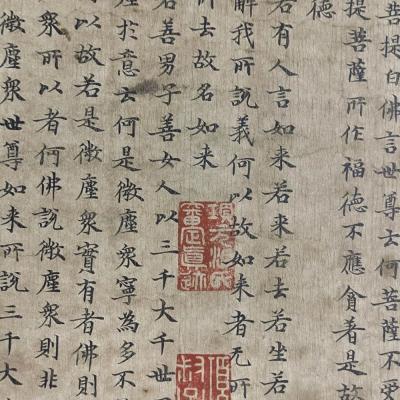 菩提白佛言世尊云何菩薩不受
提菩薩所作福德不應貪著是故
德
若有人言如来若来若去若坐若
解我所說義何以故如来者无所
所去故名如来
若善男子善女人以三千大千世
塵於意云何是微塵衆寧為多不
何以故若是微塵衆實有者佛則
衆所以者何佛說微塵衆則非
微塵衆世尊如来所說三千大
項元汴氏
審定真跡